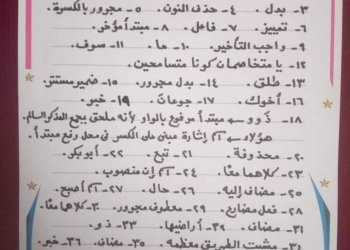 ٣- بدل ٤- حذف النون . ٥- مجرور بالكسرة .
٦- تمييز ٧- فاعل . ٨- مبتدأ مؤخر .
٩- واجب التأخير . ١٠- ما . ١١- سوف .
١٢- يا متخاصمان كونا متسامحين .
١٣- طلق ١٤- بدل مجرور . ١٥- ضمير مستتر
١٦- أخوك . ١٧- جوعان . ١٩- خبر
١٨- ذوو مبتدأ مرفوع بالواو لأنه ملحق بجمع المذكر السالم .
هؤلاء اسم إشارة مبنى على الكسر فى محل رفع مبتدأ .
٢٠- محذوفة . ٢١- تبع . ٢٢- أبو بكر
٢٣- كلاهما معًا . ٢٤- اسم إن منصوب .
٢٥- مضاف إليه . ٢٦- حال . ٢٧- اسم أصبح .
٢٨- فعل مضارع . ٢٩- معطوف مجرور . ٣٠- كلاهما معًا .
٣١- مضاف . ٣٢- أراضيها . ٣٣- ذو .
مشيت الطريق معظمه . ٣٥- مضاف . ٣٦- خبر